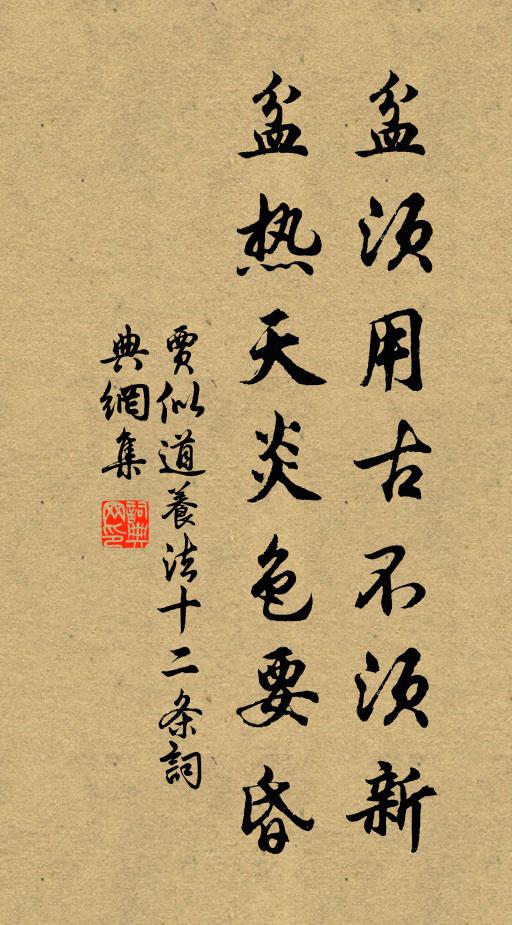 盆须用古不须新
盆热天炎色要昏
賈似道養法十二条詞
典網集
詞典網印